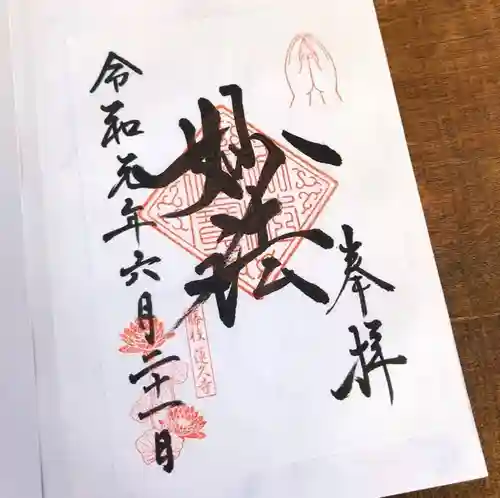 奉拝
妙法
令和元年六月二十一日
蓮久寺